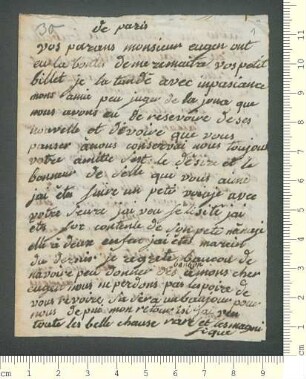 30
1
de paris
vos parans monsieur eugen ont
eu la bontes deme remaitre vos petit
billet je la tandé avec inpasiance
mons amie peu juger de la joua que
nous avons eu de reservoire de ses
nouvelle et devoire que vous
panser anous conservai nous toujour
votre amitie s'est le désire et le
bonneur de selle qui vous aime
jai ete faire un petit voyaje avec
votre seure jai veu felisité jai
ete for contente de son petit menaje
elle à deux enfans jai étés maraine
du dernier je regrete baucoul de
navoire peu donner des bonbon a mons cher
eugen nous ni perdons pas lapoire de
vous revoire, sa sera un baujour pour
nous depuis mon retour isi jai veu
toute les belle chause rare et les magni
fique
cm